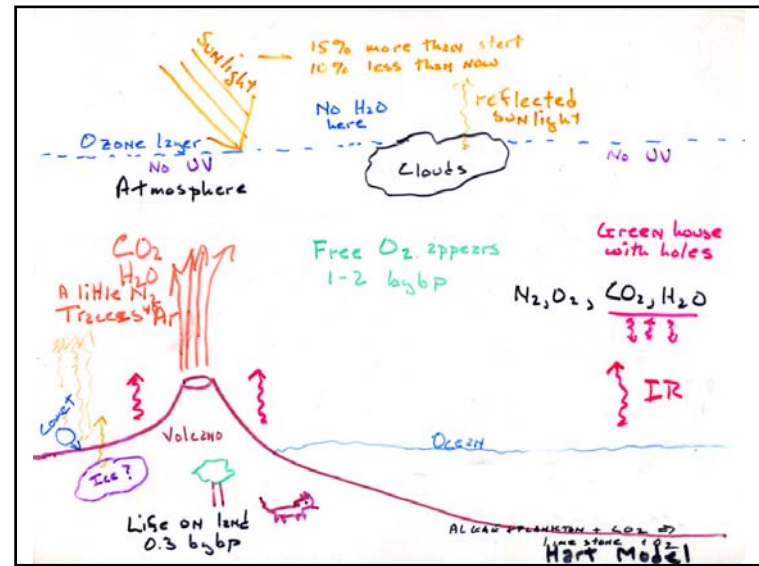 Sunlight
15% more than start
10% less than now
No H2O
here
reflected
sunlight
Ozone layer
No UV
Clouds
No UV
Atmosphere
CO2
H2O
A little N2
Traces Ar
Free O2 appears
1-2 bybp
Green house
with holes
N2, O2, CO2, H2O
IR
Comet
Volcano
Ocean
Ice?
Life on land
0.3 bybp
+ PLANKTON + CO2 ⇒
lime stone + O2
Hart Model